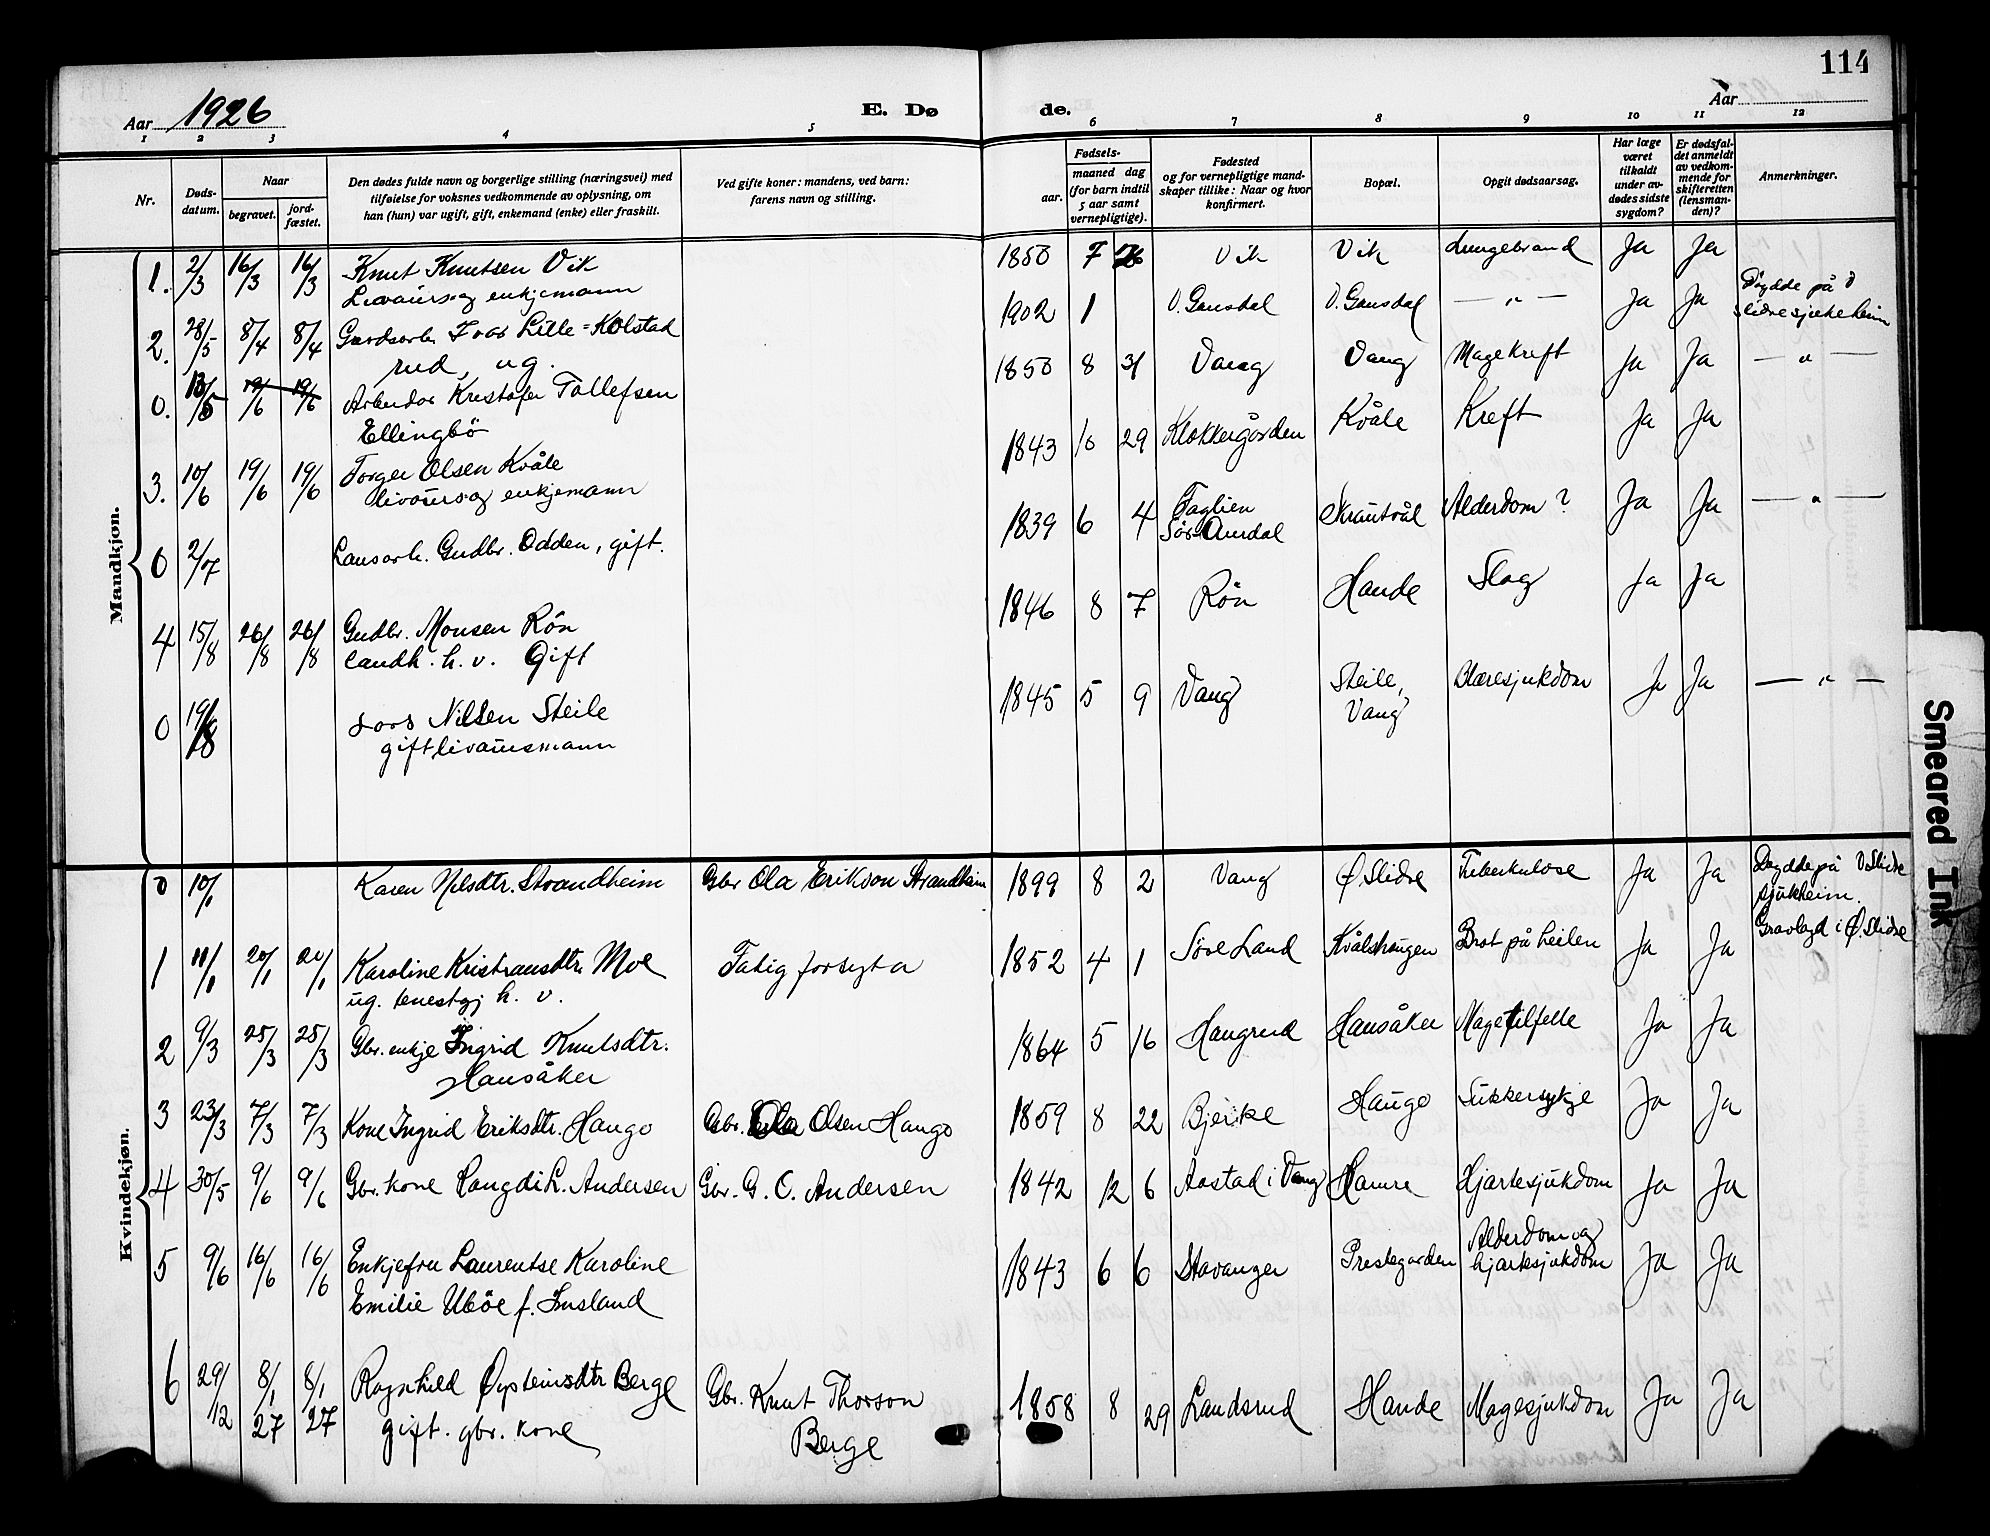 114
Aar 1926
E. Dø
de.
Aar
1 2 3 4 5 6 7 8 9 10 11 12
Nr.
Døds-
datum.
Naar
begravet.
jord-
fæstet.
Den dødes fulde navn og borgerlige stilling (næringsvei) med
tilføielse for voksnes vedkommende av oplysning, om
han (hun) var ugift, gift, enkemand (enke) eller fraskilt.
Ved gifte koner: mandens, ved barn:
farens navn og stilling.
Fødsels-
aar.
maaned dag
(for barn indtil
5 aar samt
vernepligtige).
Fødested
og for vernepligtige mand-
skaper tillike: Naar og hvor
konfirmert.
Bopæl.
Opgit dødsaarsag.
Har læge
været
tilkaldt
under av-
dødes sidste
sygdom?
Er dødsfal-
det anmeldt
av vedkom-
mende for
skifteretten
(lensman-
den)?
Anmerkninger.
Mandkjøn.
1. 2/3 16/3 16/3 Knut Knutsen Vik
Livaurs og enkjemann
1850 7 26 Vik Vik Lungebrand Ja Ja
2. 28/5 8/4 8/4 Gardsarb. Ivar Lille-Kolstad
rud, ug.
1902 1 V. Gausdal V. Gausdal — „ — Ja Ja Döydde på V
Slidre sjukeheim
0. 18/5 19/6 19/6 Arbeidar Kristofer Tollefsen
Ellingbö
1850 8 31 Vang Vang Magekreft Ja Ja — „ —
3. 10/6 19/6 19/6 Torger Olsen Kvåle
livaurs og enkjemann
1843 10 29 Klokkergården Kvåle Kreft Ja Ja
0 2/07 Lausarb. Gudbr. Odden, gift.
1839 6 4 Faglien
Sör-Aurdal Skrautvål Alderdom? Ja Ja — „ —
4 15/8 26/8 26/8 Gudbr. Monsen Rön
landh. h. v. Gift
1846 8 7 Rön Hande Slag Ja Ja
0 19/8 Lars Nilsen Steile
gift livaursmann
1845 5 9 Vang Steile,
Vang Blæresjukdom Ja Ja — „ —
Kvindekjøn.
0 10/1 Karen Nilsdtr. Strandheim Gbr Ola Erikson Strandheim 1899 8 2 Vang Ø. Slidre Tuberkulose Ja Ja Döydde på V Slidre
sjukheim.
Gravlagd i Ø. Slidre
1 11/1 20/1 20/1 Karoline Kristiansdtr. Moe
ug. tenestgj h. v.
Fatig forsygta 1852 4 1 Söre Land Kvålshaugen Brot på heilen Ja Ja
2 9/3 25/3 25/3 Gbr. enkje Ingrid Knutsdtr.
Hausåker
1864 5 16 Haugrud Hausåker Magetilfelle Ja Ja
3 23/3 7/3 7/3 Kone Ingrid Eriksdtr. Haugo Gbr. Ola Olsen Haugo 1859 8 22 Bjerke Haugo Sukkersykje Ja Ja
4 30/5 9/6 9/6 Gbr. kone Langdi L. Andersen Gbr. G. O. Andersen 1842 12 6 Aastad i Vang Hamre Hjartesjukdom Ja Ja
5 9/6 16/6 16/6 Enkjefru Laurentse Karoline
Emilie Uböe f. Insland
1843 6 6 Stavanger Prestegarden Alderdom og
hjartesjukdom Ja Ja
6 29/12 8/1 27 8/1 27 Ragnhild Øysteinsdtr Berge
gift. gbr. kone
Gbr. Knut Thorson
Berge
1858 8 29 Landsrud Hande Magesjukdom Ja Ja
Smeared Ink